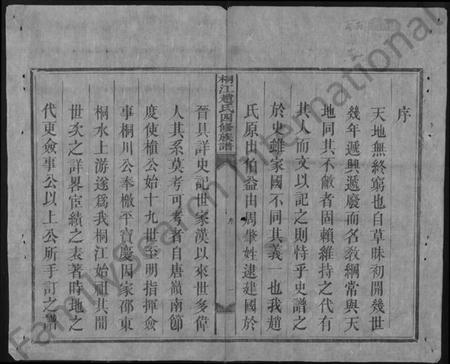 序
天地無終窮也自草昧初開幾世
幾年遞興遞廢而名教綱常與天
地同其不敝者固賴維持之代有
其人而文以記之則恃乎史譜之
於史雖家國不同其義一也我趙
氏原出伯益由周肇姓逮建國於
桐江趙氏四修族譜
晉具詳史記世家漢以來世多偉
人其系莫考可考者自唐嶺南節
度使植公始十九世至明指揮僉
事桐川公奉檄平寶慶因家邵東
桐水上游遂為我桐江始祖其間
世次之詳畧宦績之表著時地之
代更僉事公以上公所手訂之譜
FamilySearch International